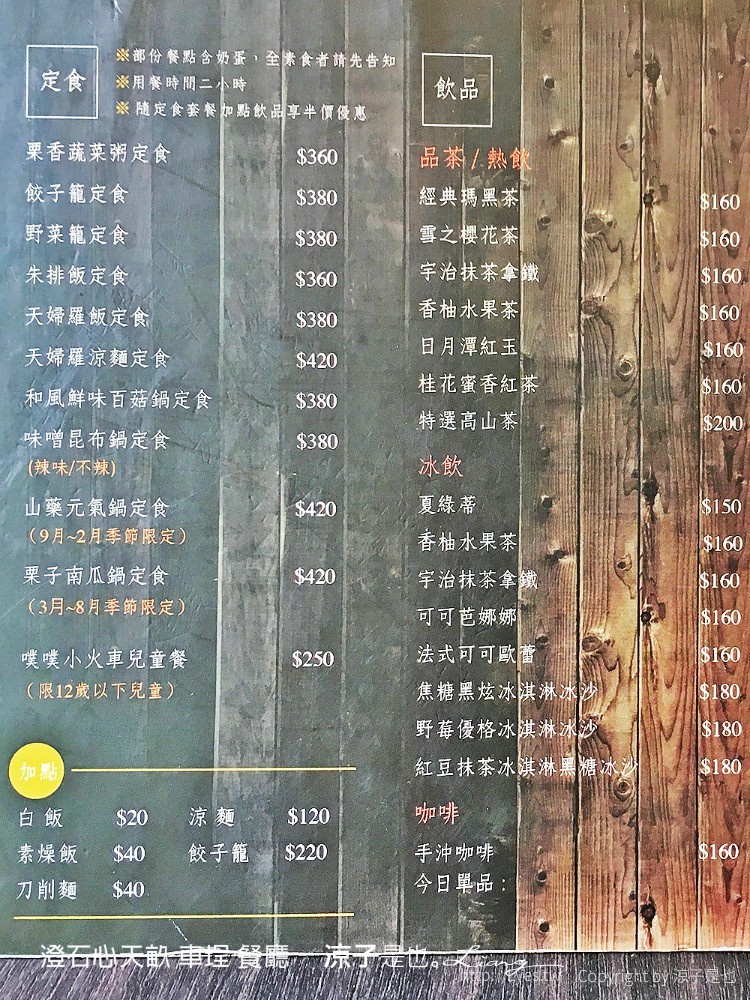 定食
※部份餐點含奶蛋，全素食者請先告知
※用餐時間二小時
※ 隨定食套餐加點飲品享半價優惠
栗香蔬菜粥定食 $360
餃子籠定食 $380
野菜籠定食 $380
朱排飯定食 $360
天婦羅飯定食 $380
天婦羅涼麵定食 $420
和風鮮味百菇鍋定食 $380
味噌昆布鍋定食 $380
(辣味/不辣)
山藥元氣鍋定食 $420
（9月~2月季節限定）
栗子南瓜鍋定食 $420
（3月~8月季節限定）
噗噗小火車兒童餐 $250
（限12歲以下兒童）
加點
白飯 $20 涼麵 $120
素燥飯 $40 餃子籠 $220
刀削麵 $40
飲品
品茶/熱飲
經典瑪黑茶 $160
雪之櫻花茶 $160
宇治抹茶拿鐵 $160
香柚水果茶 $160
日月潭紅玉 $160
桂花蜜香紅茶 $160
特選高山茶 $200
冰飲
夏綠蒂 $150
香柚水果茶 $160
宇治抹茶拿鐵 $160
可可芭娜娜 $160
法式可可歐蕾 $160
焦糖黑炫冰淇淋冰沙 $180
野莓優格冰淇淋冰沙 $180
紅豆抹茶冰淇淋黑糖冰沙 $180
咖啡
手沖咖啡 $160
今日單品：
澄石心天畝 車埕 餐廳 涼子是也。Ling
Copyright by 涼子是也